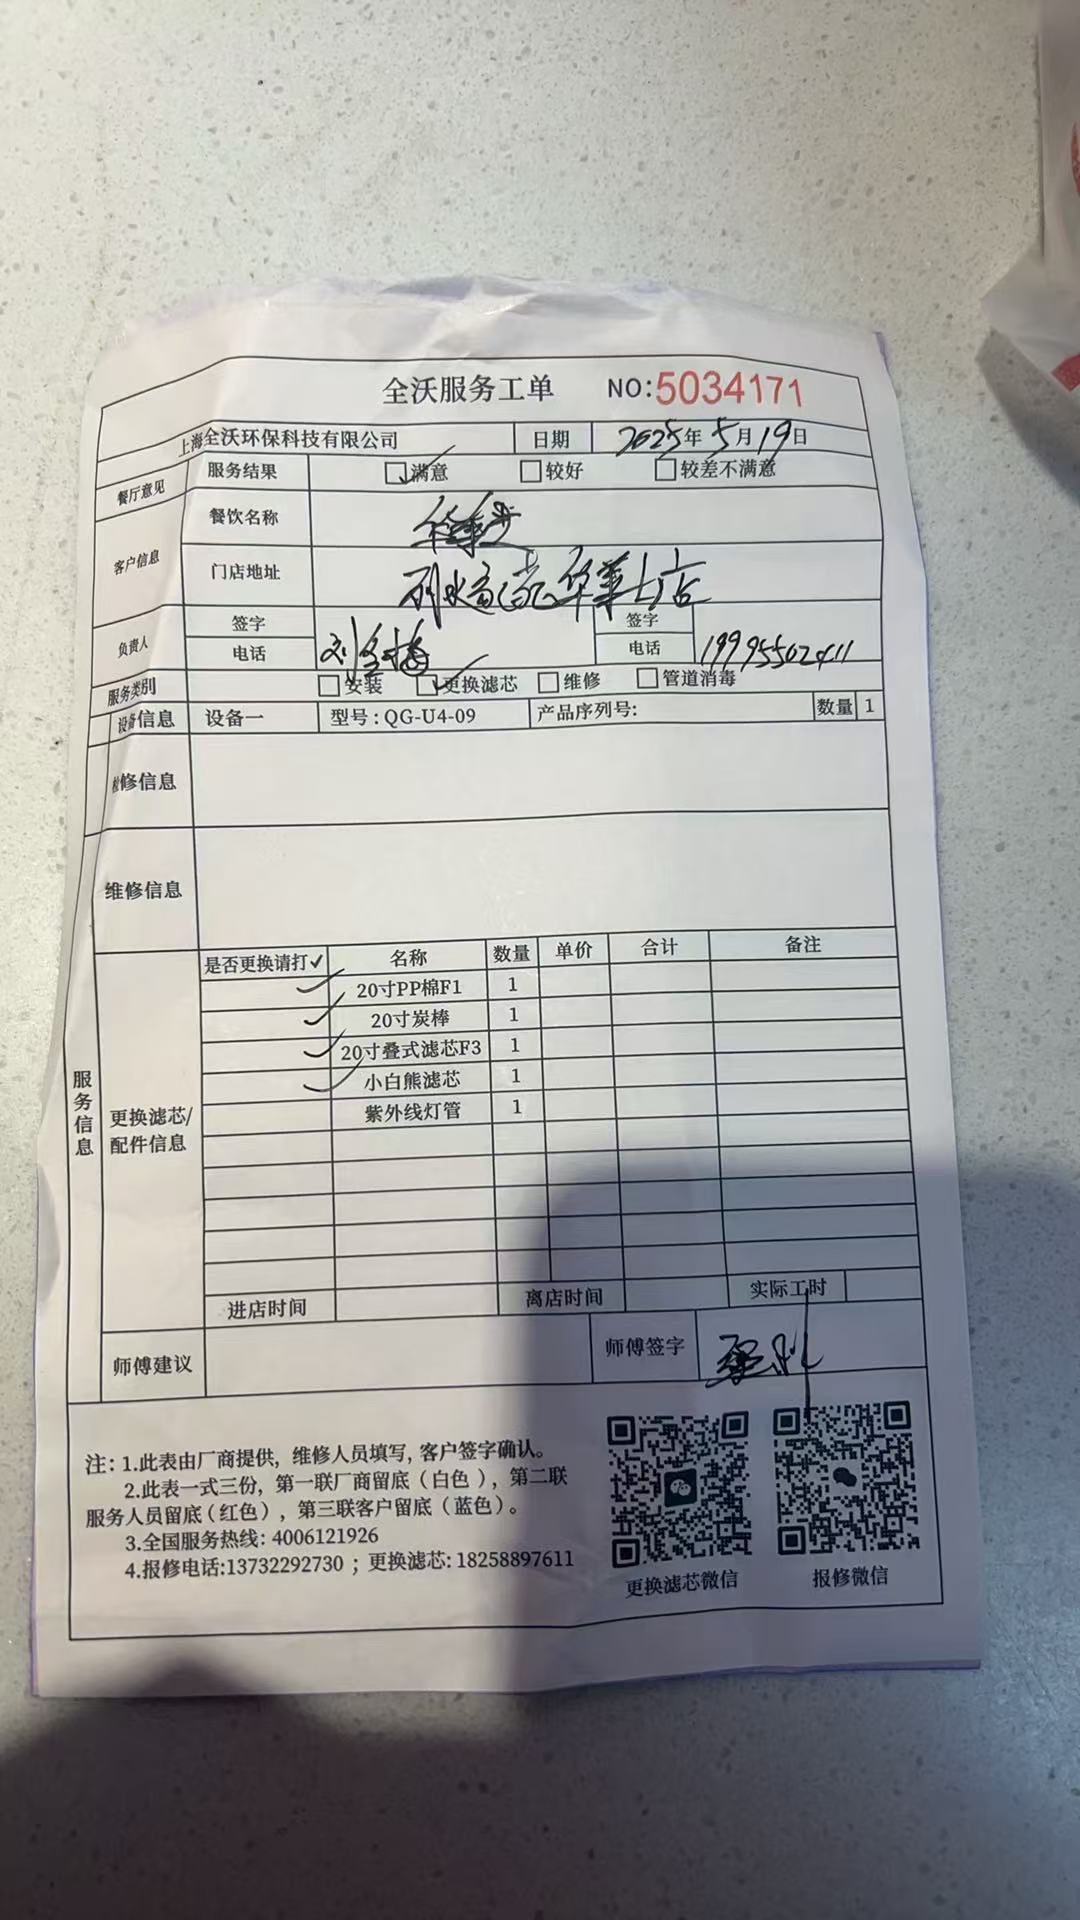 全沃服务工单 NO:5034171
上海全沃环保科技有限公司 日期 2025年5月19日
餐厅意见 服务结果 满意 较好 较差不满意
客户信息 餐饮名称 华莱士
门店地址 华莱士店
负责人 签字 签字
电话 电话 19995502411
服务类别 安装 更换滤芯 维修 管道消毒
设备信息 设备一 型号：QG-U4-09 产品序列号: 数量 1
检修信息
维修信息
服务信息
更换滤芯/
配件信息
是否更换请打✓ 名称 数量 单价 合计 备注
✓ 20寸PP棉F1 1
✓ 20寸炭棒 1
✓ 20寸叠式滤芯F3 1
✓ 小白熊滤芯 1
紫外线灯管 1
进店时间 离店时间 实际工时
师傅建议 师傅签字
注：1.此表由厂商提供，维修人员填写，客户签字确认。
2.此表一式三份，第一联厂商留底（白色），第二联
服务人员留底（红色），第三联客户留底（蓝色）。
3.全国服务热线: 4006121926
4.报修电话:13732292730 ；更换滤芯: 18258897611
更换滤芯微信 报修微信